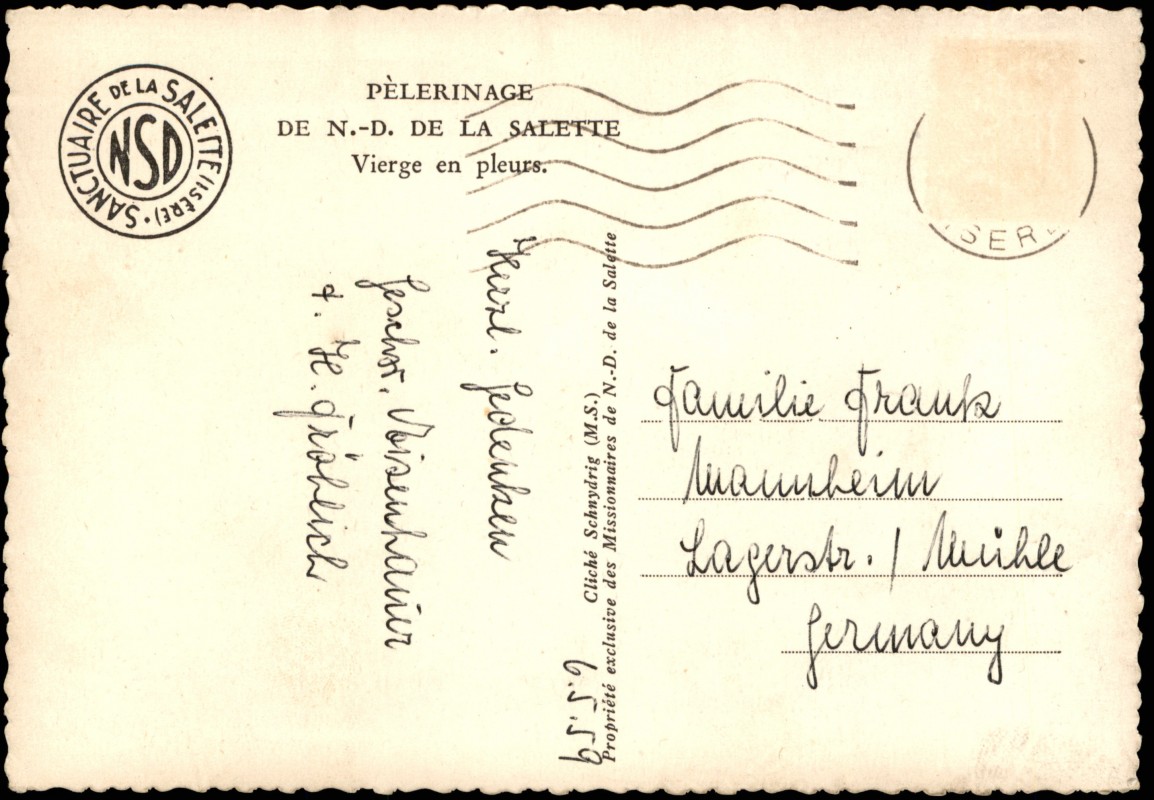 SANCTUAIRE DE LA SALETTE (ISÈRE) •
NSD
PÈLERINAGE
DE N.-D. DE LA SALETTE
Vierge en pleurs.
Herzl. Gedenken
Geschw. Moisenhauer
+. H. Fröhlich
6.5.59
Cliché Schnydrig (M.S.)
Propriété exclusive des Missionnaires de N.-D. de la Salette
ISER
Familie Frank
Mannheim
Lagerstr. / Mühle
Germany